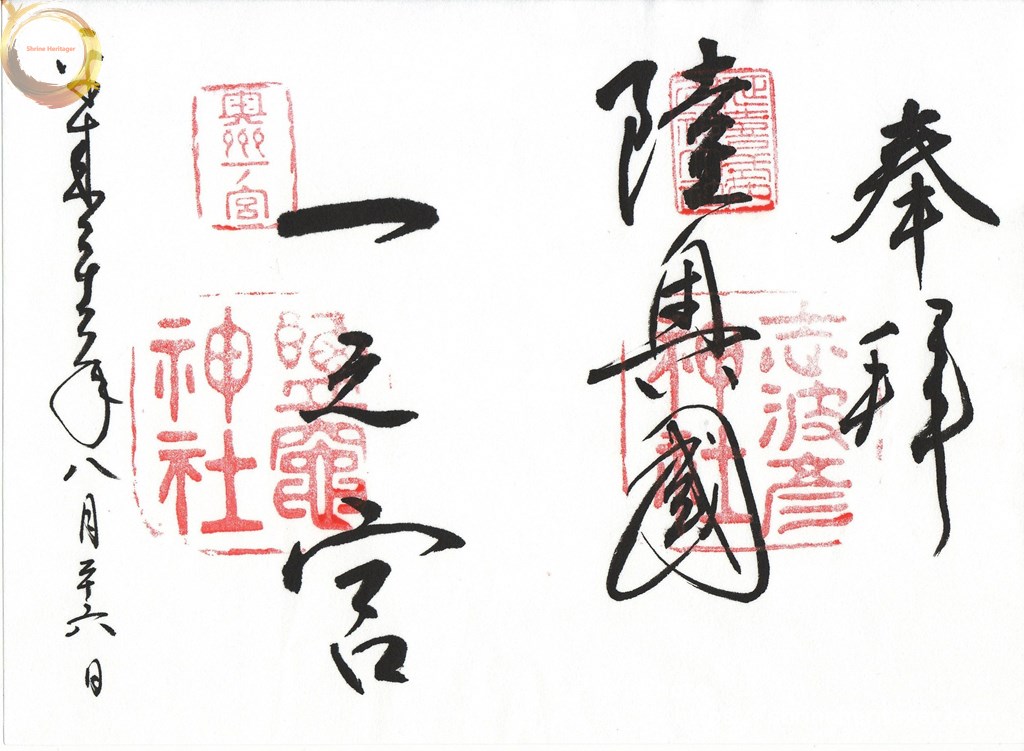 奉拝
陸奥國
志波彦
神社
一之宮
奥州一ノ宮
鹽竈
神社
年八月二十六日
Shrine Heritager